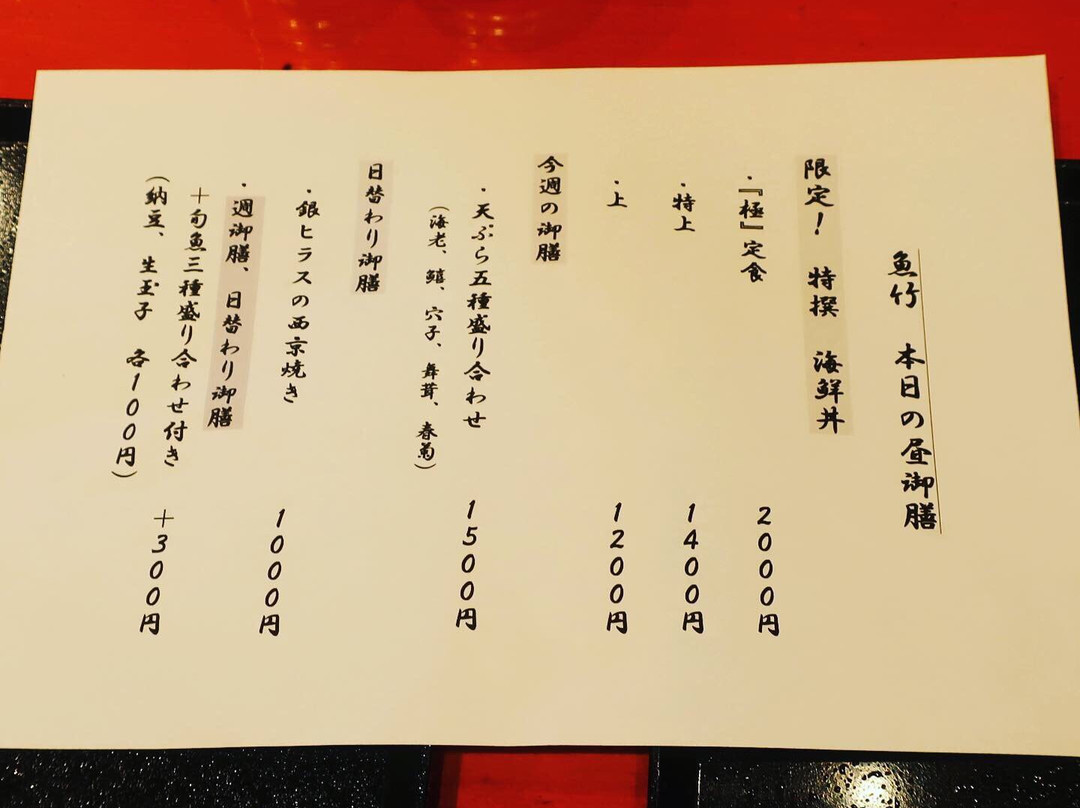 魚竹　本日の昼御膳
限定！　特撰　海鮮丼
・『極』定食　2000円
・特上　1400円
・上　1200円
今週の御膳
・天ぷら五種盛り合わせ　1500円
（海老、鱚、穴子、舞茸、春菊）
日替わり御膳
・銀ヒラスの西京焼き　1000円
・週御膳、日替わり御膳
＋旬魚三種盛り合わせ付き　＋300円
（納豆、生玉子　各100円）